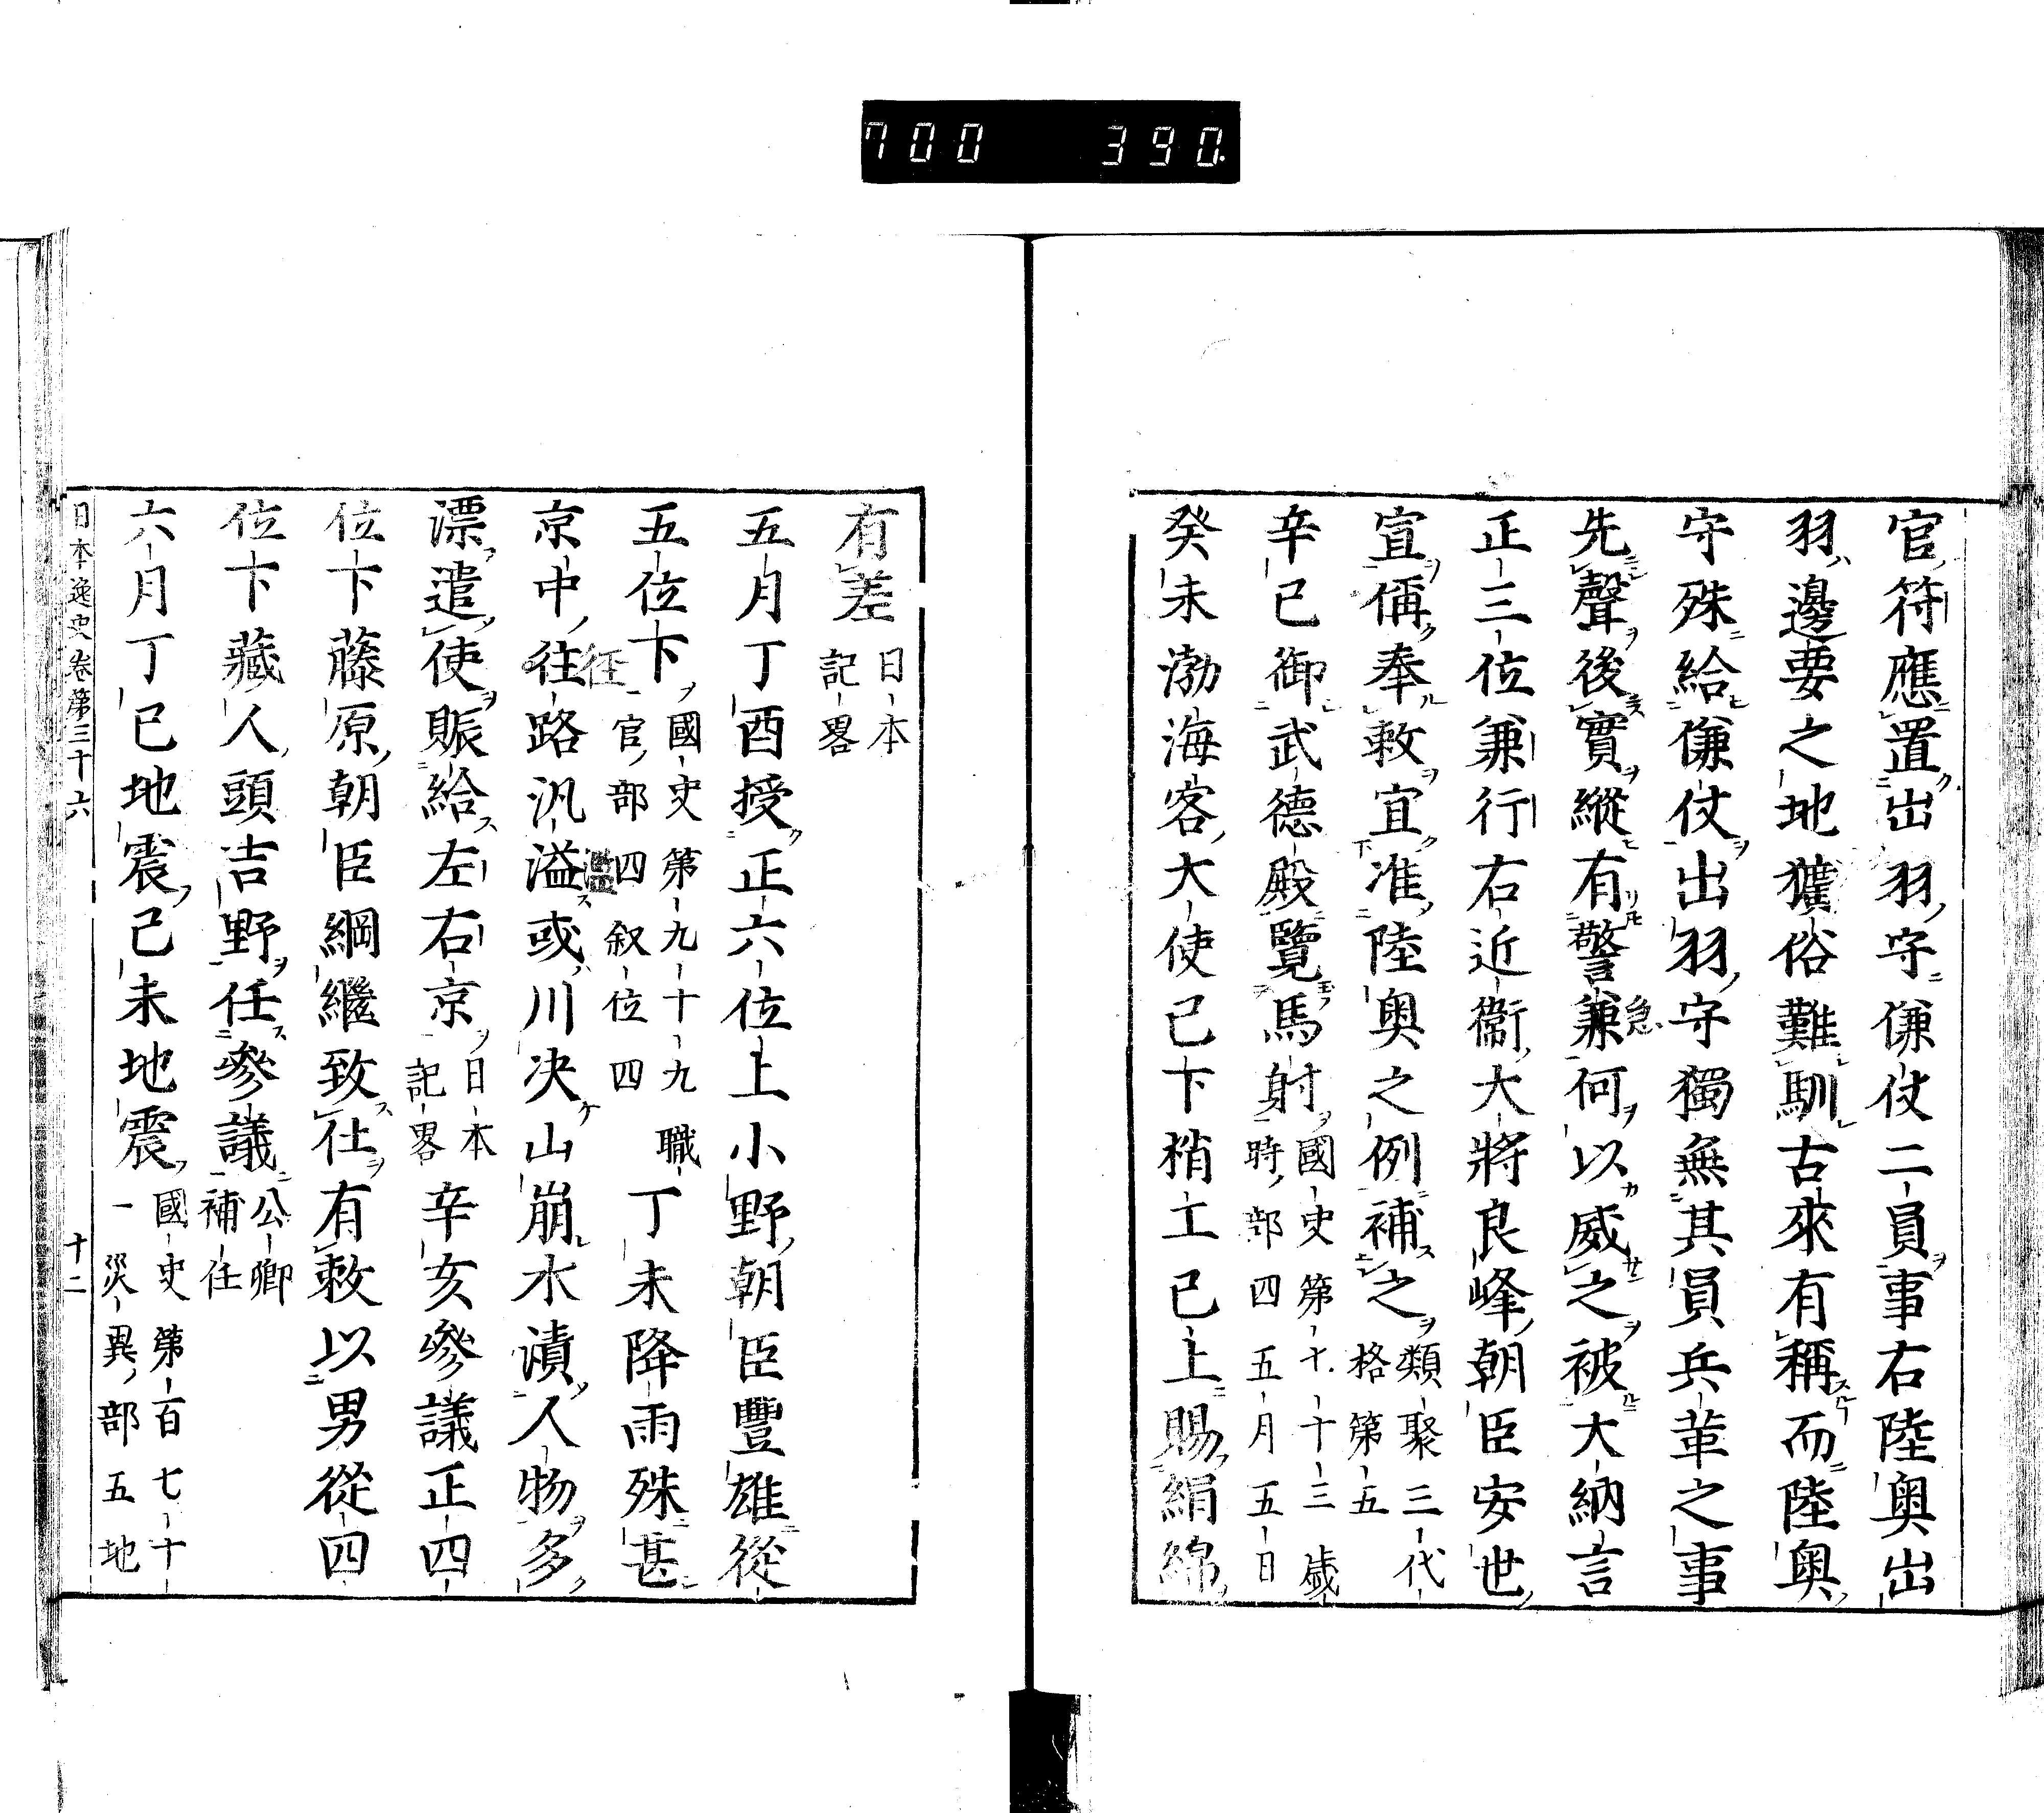 700 390.
官符應置出羽守傔仗二員事右陸奧出
羽邊要之地獷俗難馴古來有稱而陸奧
守殊給傔仗出羽守獨無其員兵革之事
先聲後實縱有警急
兼何以威之被大納言
正三位兼行右近衞大將良峰朝臣安世
宣偁奉敕宜准陸奧之例補之類聚三代
格第五
辛巳御武德殿覽馬射國史第十十三歲
時部四五月五日
癸未渤海客大使已下梢工已上賜絹綿
有差日本
記畧
五月丁酉授正六位上小野朝臣豐雄從
五位下國史第九十九職
官部四叙位四
丁未降雨殊甚
京中往路汎溢或川决山崩水漬人物多
漂遣使賑給左右京日本
記畧
辛亥參議正四
位下藤原朝臣綱繼致仕有敕以男從四
位下藏人頭吉野任參議公卿
補任
六月丁巳地震己未地震國史第百七十
一災異部五地
日本逸史卷第三十六 十二